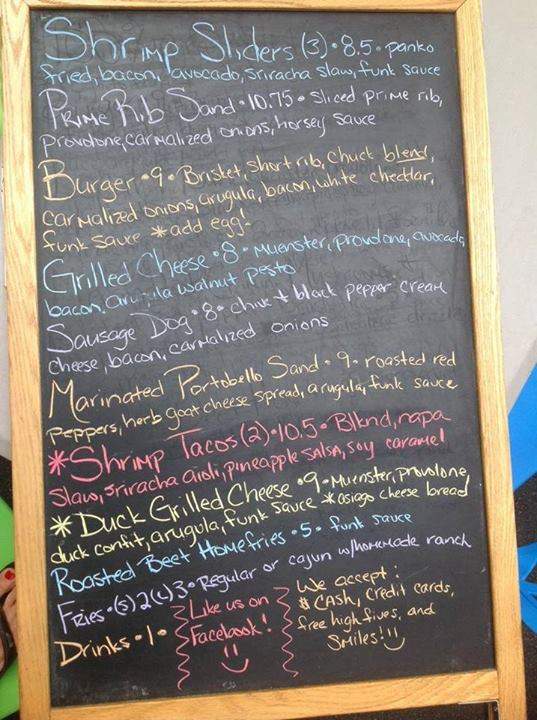 Shrimp Sliders (3) • 8.5 • panko
fried, bacon, avocado, sriracha slaw, funk sauce
Prime Rib Sand • 10.75 • Sliced prime rib,
provolone, carmalized onions, horsey sauce
Burger • 9 • Brisket, short rib, chuck blend,
carmalized onions, arugula, bacon, white cheddar,
funk sauce *add egg!
Grilled Cheese • 8 • Muenster, provolone, avocado,
bacon, arugula walnut pesto
Sausage Dog • 8 • chive + black pepper cream
cheese, bacon, carmalized onions
Marinated Portobello Sand • 9 • roasted red
peppers, herb goat cheese spread, arugula, funk sauce
*Shrimp Tacos (2) • 10.5 • Blknd, napa
slaw, sriracha aioli, pineapple salsa, soy caramel
*Duck Grilled Cheese • 9 • Muenster, provolone,
duck confit, arugula, funk sauce *asiago cheese bread
Roasted Beet Homefries • 5 • funk sauce
Fries • (s) 2 (L) 3 • Regular or cajun w/homemade ranch
Drinks • 1 •
Like us on
Facebook!
We accept:
$ CASH, credit cards,
free high fives, and
Smiles!!